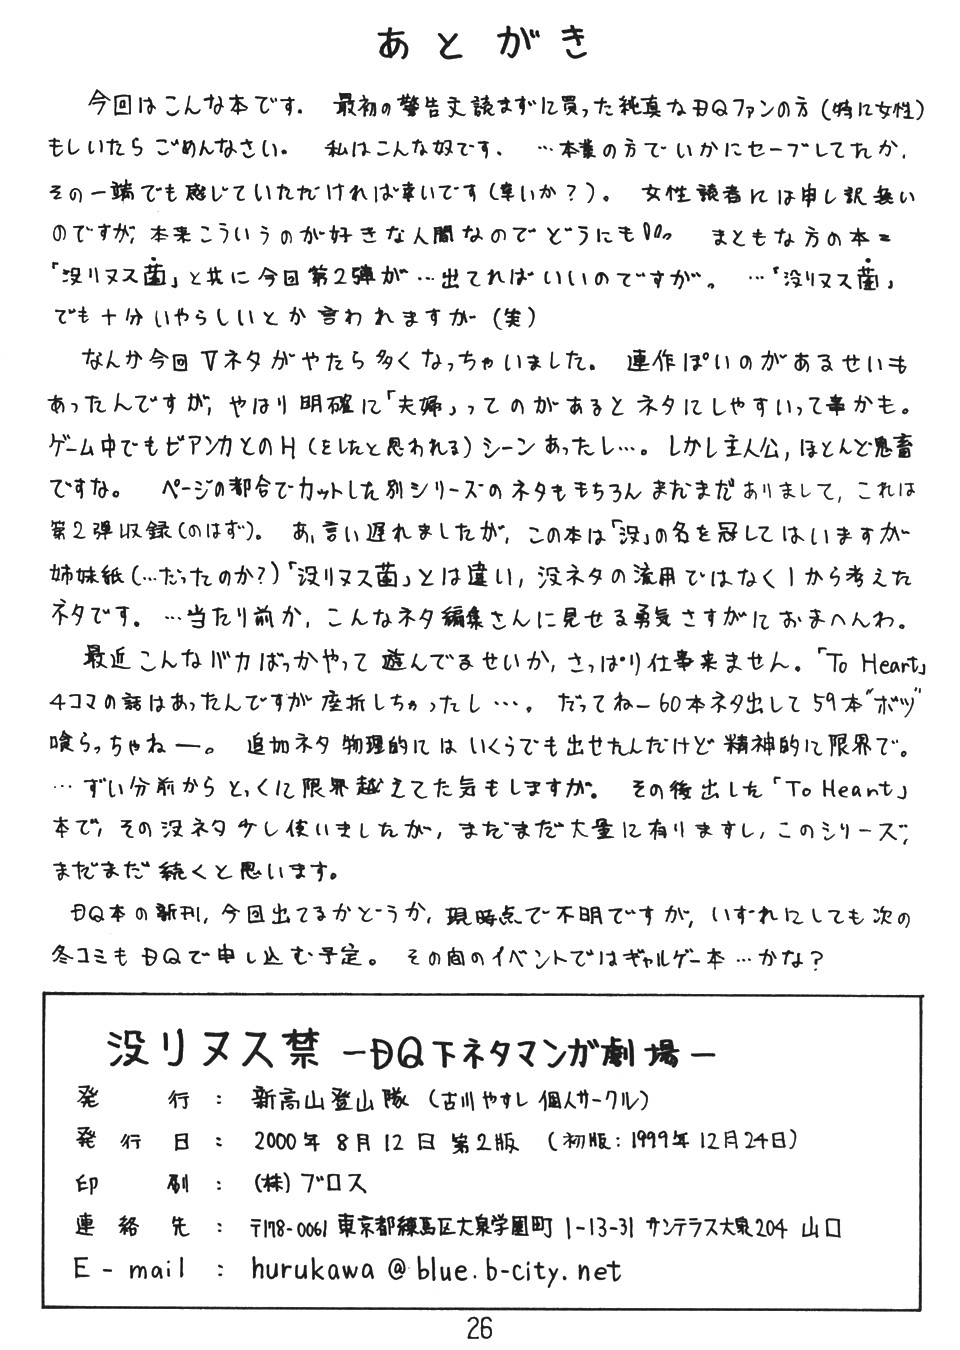 あとがき
今回はこんな本です。 最初の警告文読まずに買った純真なDQファンの方(特に女性)
もしいたらごめんなさい。 私はこんな奴です。 …本業の方でいかにセーブしてたか、
その一端でも感じていただければ幸いです(幸いか?)。 女性読者には申し訳無い
のですが、本来こういうのが好きな人間なのでどうにも!!。 まともな方の本=
「没リヌス菌」と共に今回第2弾が…出てればいいのですが。 …「没リヌス菌」
でも十分いやらしいとか言われますが(笑)
なんか今回Vネタがやたら多くなっちゃいました。 連作ぽいのがあるせいも
あったんですが、やはり明確に「夫婦」ってのがあるとネタにしやすいって事かも。
ゲーム中でもビアンカとのH(をしたと思われる)シーンあったし…。しかし主人公、ほとんど鬼畜
ですな。 ページの都合でカットした別シリーズのネタももちろんまだまだありまして、これは
第2弾収録(のはず)。 あ、言い遅れましたが、この本は「没」の名を冠してはいますが
姉妹紙(…だったのか?)「没リヌス菌」とは違い、没ネタの流用ではなく1から考えた
ネタです。…当たり前か、こんなネタ編集さんに見せる勇気さすがにおまへんわ。
最近こんなバカばっかやって遊んでるせいか、さっぱり仕事来ません。「To Heart」
4コマの話はあったんですが座折しちゃったし…。 だってねー60本ネタ出して59本"ボツ"
喰らっちゃねー。 追加ネタ物理的にはいくらでも出せたんだけど精神的に限界で。
…ずい分前からとっくに限界越えてた気もしますが。 その後出した「To Heart」
本で、その没ネタ少し使いましたが、まだまだ大量に有りますし、このシリーズ、
まだまだ続くと思います。
DQ本の新刊、今回出てるかどうか、現時点で不明ですが、いずれにしても次の
冬コミもDQで申し込む予定。 その間のイベントではギャルゲー本…かな?
没リヌス禁 ーDQ下ネタマンガ劇場ー
発行 : 新高山登山隊 (古川やすし個人サークル)
発行日 : 2000年8月12日 第2版 (初版:1999年12月24日)
印刷 : (株)ブロス
連絡先 : 〒178-0061 東京都練馬区大泉学園町1-13-31 サンテラス大泉204 山口
E-mail : hurukawa@blue.b-city.net
26